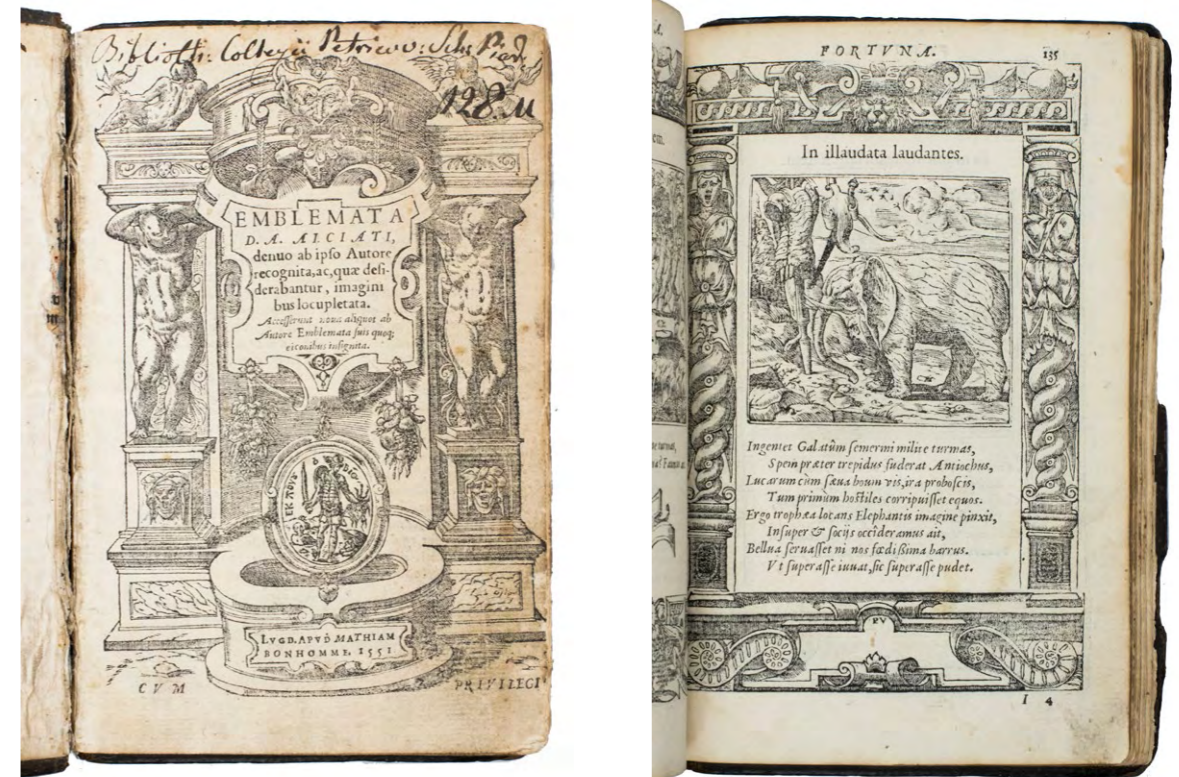 Bibliotti: Collegii Petricov: Sch: Piar
128.M
EMBLEMATA
D. A. ALCIATI,
denuo ab ipso Autore
recognita, ac, quæ desi-
derabantur, imagini
bus locupletata.
Accesserunt noua aliquot ab
Autore Emblemata suis quoq;
eiconibus insignita.
LVGD. APVD MATHIAM
BONHOMME. 1551
CVM PRIVILEGI
FORTVNA. 135
In illaudata laudantes.
Ingentes Galatûm semermi milite turmas,
Spem præter trepidus fuderat Antiochus,
Lucarum cùm sæua boum vis, ira proboscis,
Tum primùm hostiles corripuisset equos.
Ergo trophæa locans Elephantis imagine pinxit,
Insuper & socijs occideramus ait,
Bellua seruasset ni nos fœdissima barrus.
Vt superasse iuuat, sic superasse pudet.
PV
I 4